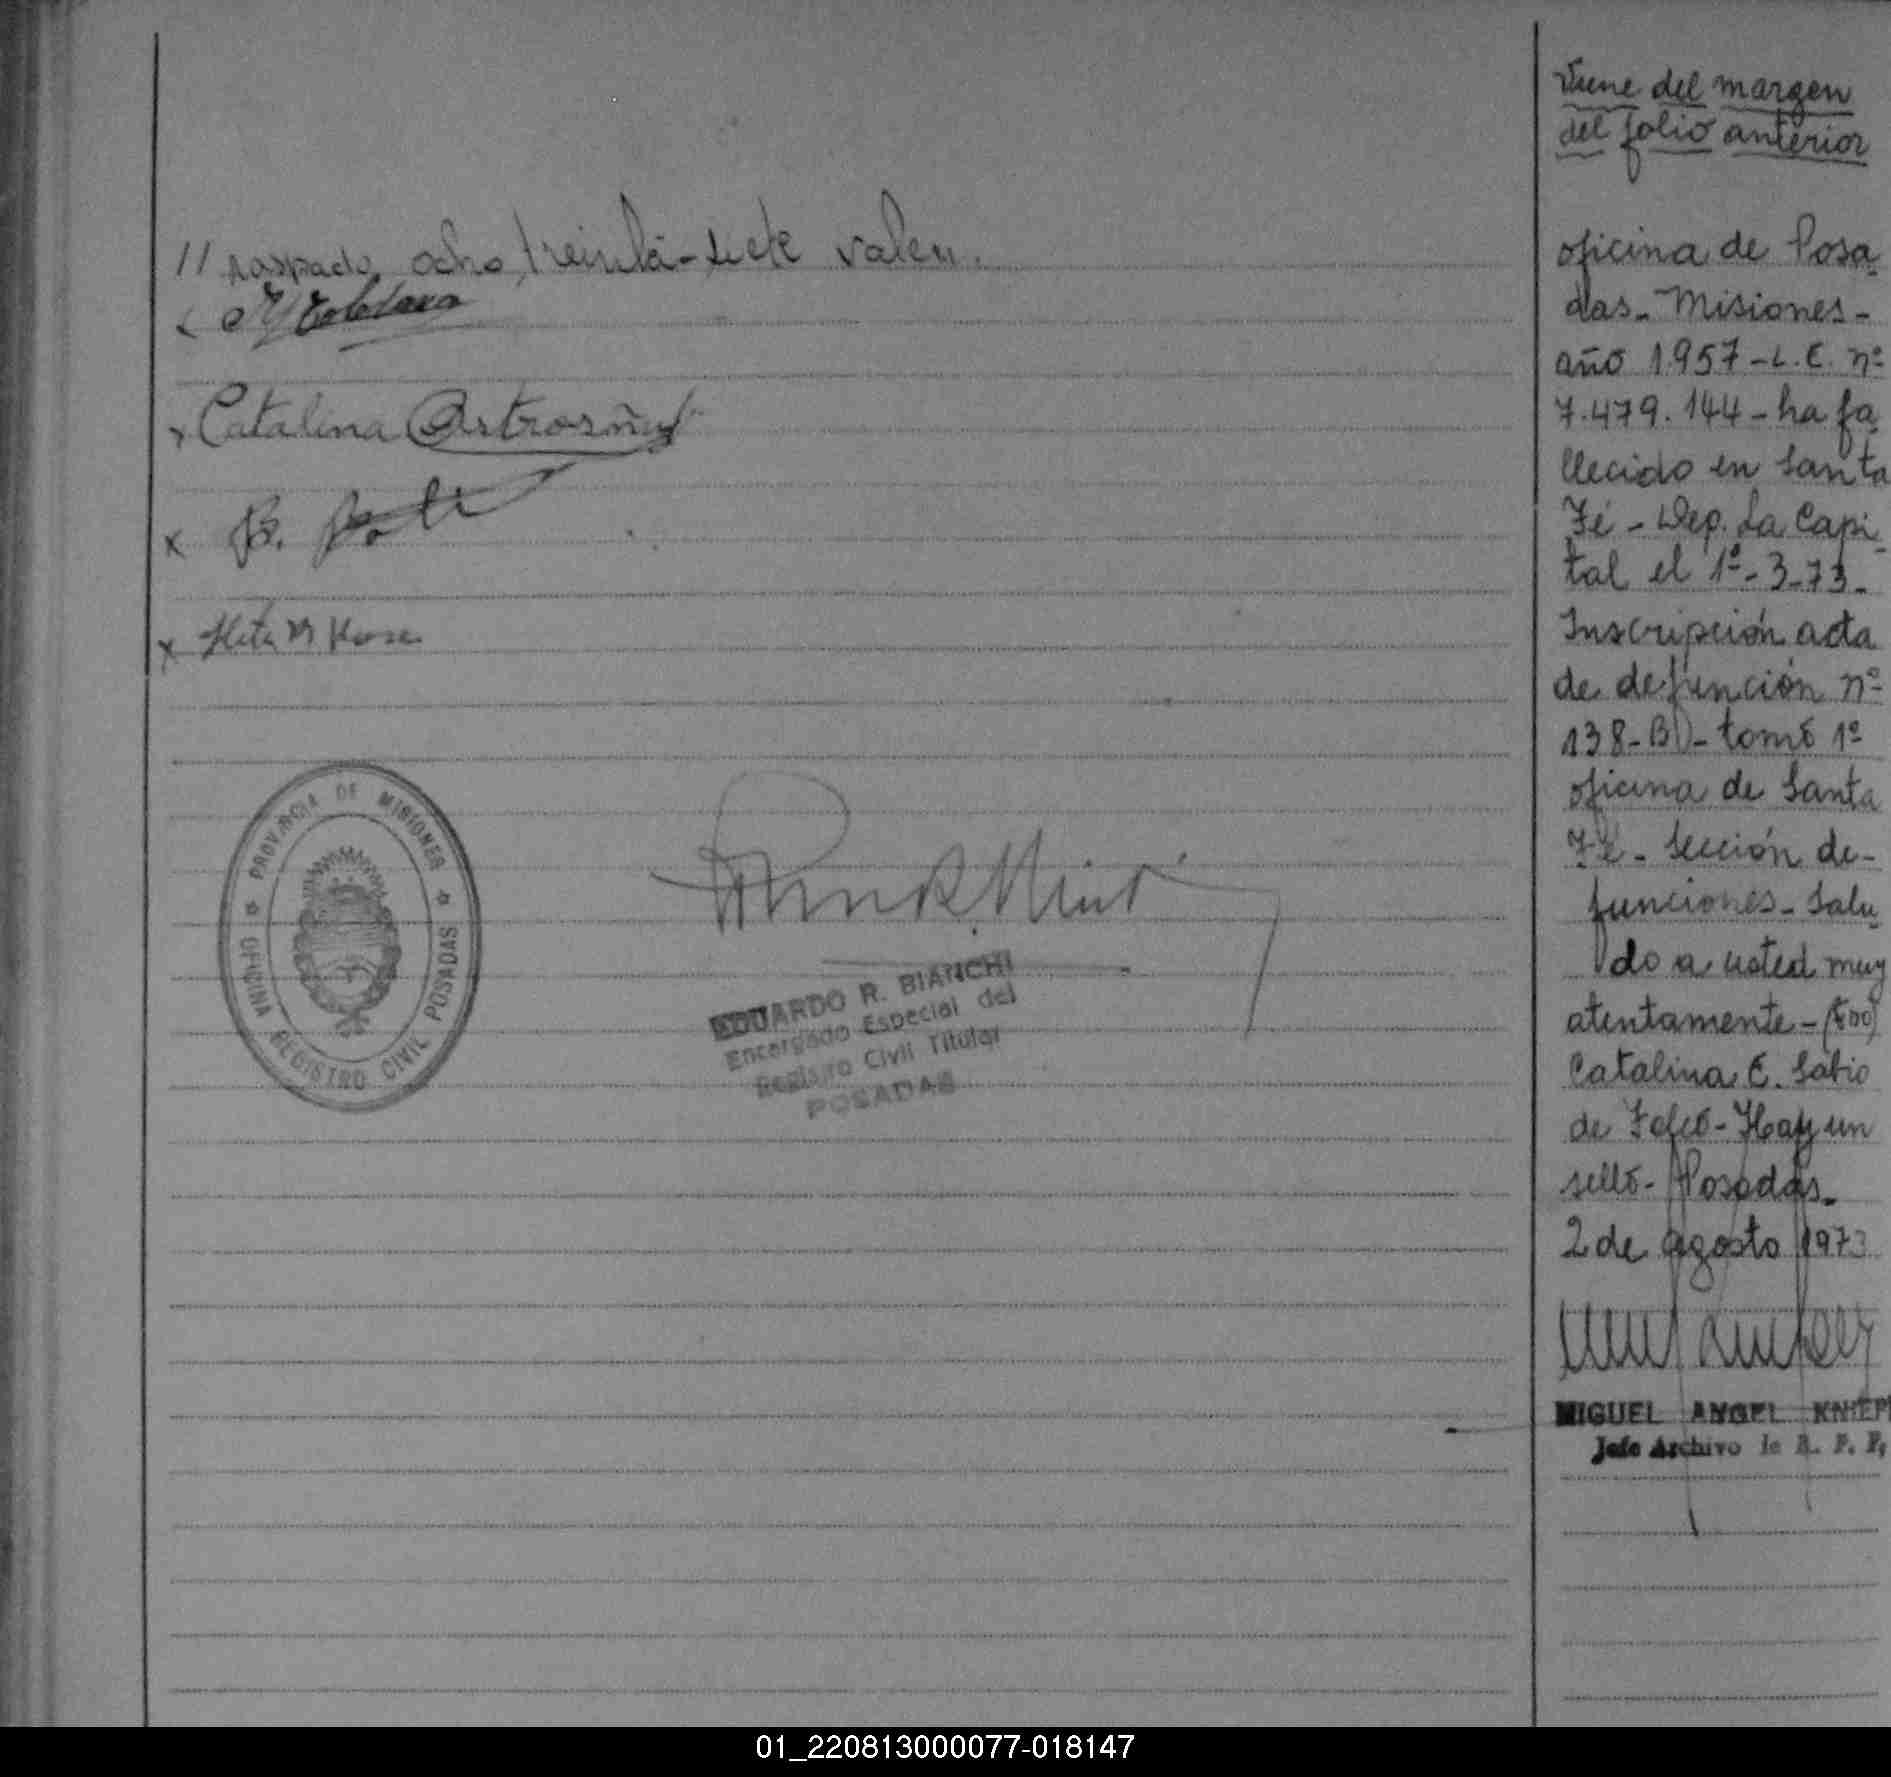 // raspado ocho, treinta-siete valen.
Catalina
x B.
x
PROVINCIA DE MISIONES
OFICINA REGISTRO CIVIL POSADAS
EDUARDO R. BIANCHI
Encargado Especial del
Registro Civil Titular
POSADAS
Viene del margen
del folio anterior
oficina de Posa-
das - Misiones -
año 1.957 - L. E. nº
7.479.144 - ha fa-
llecido en Santa
Fé - Dep. La Capi-
tal el 1º-3-73-
Inscripción acta
de defunción nº
138-B - tomo 1º
oficina de Santa
Fé - Sección de-
funciones - Salu-
do a usted muy
atentamente - (Fdo)
Catalina E. Sabio
de - Hay un
sello - Posadas -
2 de agosto 1973
MIGUEL ANGEL
Jefe Archivo R. P. P.
01_220813000077-018147